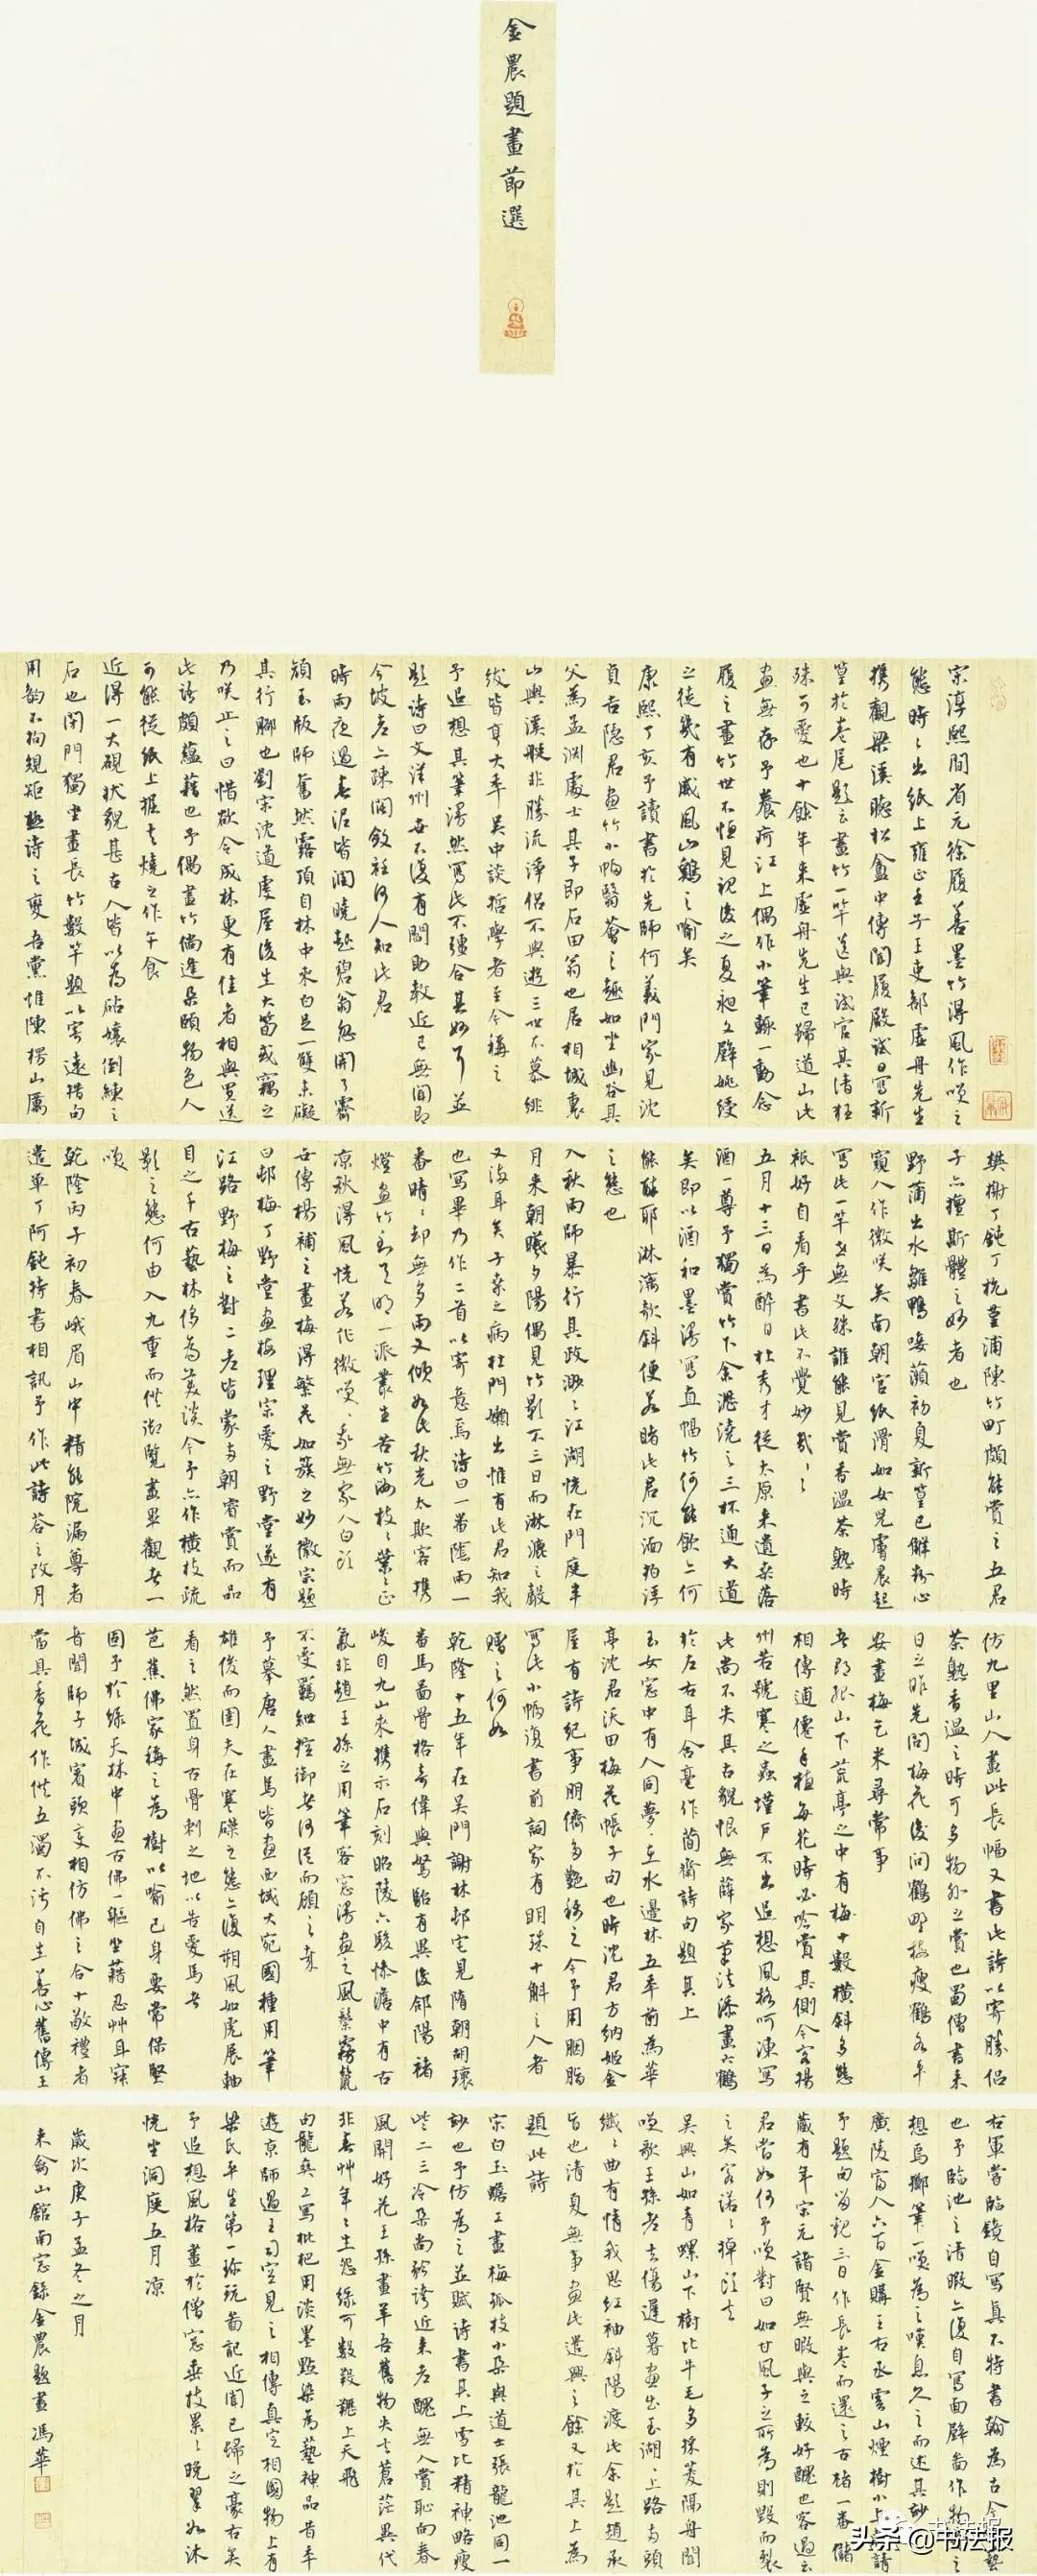 金農題畫節選
宋淳熙間省元徐履善墨竹得風作嘆之
態時時出紙上雍正壬子王吏部虛舟先生
携觀梁溪聽松盦中傳聞履殿試日寫新
篁於卷尾題云畫竹一竿送與試官其清狂
殊可愛也十餘年来虛舟先生已歸道山此
畫無存予養疴江上偶作小筆輒一動念
履之畫竹世不恒見視後之夏昶文
之徒幾有威風山鷄之喻矣
康熙丁亥予讀書於先師何義門家見沈
貞吉隐君画竹小幀翳薈之趣如坐幽谷其
父為孟淵處士其子即石田翁也居相城裏
山與溪艇非勝流淨侣不與遊三世不慕緋
紱皆享大年吳中談哲學者至今稱之
予追想其筆漫然寫此不彊合其妙了並
題詩曰文洋州去不復有關助教近已無聞即
今坡老亡陳闊敘種何人知此君
時雨夜過春泥皆潤曉起碧翁忽開了霽
頑玉版師奮然露頂自林中来白足一雙未礙
其行腳也劉宋沈道虔屋後生大笋或竊之
乃咲止之曰惜欲令成林更有佳者相與買送
此語頗蘊藉也予偶畫竹倘逢朵頤物色人
可能從紙上掘去燒之作午食
近得一大硯状貌甚古人皆以為砧孃倒練之
石也閉門獨坐畫長竹數竿題以寄遠措句
用韵不拘規矩極詩之變吾黨惟陳楞山厲
樊榭丁鈍丁杭菫浦陳竹町頗能賞之五君
子亦擅斯體之妙者也
野蒲出水雛鴨唼蘋初夏新篁已解粉心
窺人作微咲矣南朝官紙滑如女兒膚晨起
寫此一竿老無文殊誰能見賞香温茶熟時
祇好自看乎書此不覺妙哉々
五月十三日為醉日杜秀才從太原来遺桑落
酒一尊予獨賞竹下余瀝澆之三杯通大道
矣即以酒和墨漫寫直幅竹何能飲亡何
能醉耶淋漓欹斜便若睹此君沉湎拍浮
之態也
入秋雨師暴行其政渺々江湖恍在門庭半
月来朝曦夕陽偶見竹影不三日而淋漉之聲
又海耳矣予桑之病杜門嬾出惟有此君知我
也寫畢乃作二首以寄意焉詩曰一番陰雨一
番晴々却無多雨又傾如此秋光太欺客携
燈画竹到天明一派叢生苦竹洲枝々葉々正
凉秋得風恍若作微嘆々我無家人白頭
世傳楊補之畫梅得繁花如簇之妙徽宗題
曰邨梅丁野堂画梅理宗愛之野堂遂有
江路野梅之對二老皆蒙當朝睿賞而品
目之千古藝林侈為美談今予亦作横枝疏
影之態何由入九重而供御覽畫畢觀者一
嘆
乾隆丙子初春峨眉山中精能院漏尊者
遣单丁阿鈍持書相訊予作此詩荅之改月
仿九里山人畫此長幅又書此詩以寄勝侣
茶熟香温之時可多物外之賞也蜀僧書来
日之昨先問梅花後问鶴野梅瘦鶴各平
安畫梅乞米尋常事
吾郡孤山下荒亭之中有梅十數横斜多態
相傳逋僊手植每花時必吟賞其側今客揚
州若號寒之蟲墐戶不出追想風格呵凍寫
此尚不失其古貌恨無薛家筆法添畫六鶴
於左右耳含毫作簡齋詩句題其上
玉女窓中有人同夢々在水邊林五年前為華
亭沈君沃田梅花帳子句也時沈君方納姬金
屋有詩紀事朋儕多艷稱之今予用胭脂
寫此小幀復書前詞家有明珠十斛之人者
贈之何如
乾隆十五年在吳門謝林邨宅見隋朝胡瓌
番馬圖骨格奇偉與駑駘有異後郃陽褚
峻自九山来携示石刻昭陵六駿慘澹中有古
氣非趙王孫之用筆客窓漫画之風鬃霧鬣
不受羈紲控御者何從而顧之哉
予摹唐人畫馬皆画西域大宛國種用筆
雄俊而圉夫在寒磔之態亡復朔風如虎展軸
看之然置身古骨刺之地以告愛馬者
芭蕉佛家稱之為樹以喻己身要常保堅
固予於綠天林中画古佛一軀坐藉忍艸耳寂
音聞師子城賓頭變相仿佛之合十敬禮者
當具香花作供五濁不污自生善心舊傳王
右軍嘗臨鏡自寫真不特書翰為古今
也予臨池之清暇亡復自寫面壁啚作物
想焉擲筆一嘆為之嘆息久之而述其妙
廣陵富人六百金購王右丞雲山煙樹小
予題句留觀三日作長卷而還之古楮一番儲
藏有年宋元諸賢無暇與之較好醜也客過云
君當如何予嘆對曰如甘風子之所為則毀而裂
之矣客諾々掉頭去
吳興山如青螺山下樹比牛毛多採菱隔舟聞
嘆歌王孫老去傷遲暮畫出玉湖々上路當頭
纖々曲有情我思紅袖斜陽渡此余題趙承
旨也清夏無事画此遣興之餘又於其上為
題此詩
宗白玉蟾工畫梅孤枝小朶與道士張龍池同一
妙也予仿為之並賦詩書其上雪比精神略瘦
些二三冷朶尚矜誇近来老醜無人賞恥向春
風開好花王孫畫羊吾舊物失去蒼茫異代
非春艸年々生怨緑可數羖䍽上天飛
向龍興之寫枇杷用淡墨點染為藝神品昔年
遊京師過王司空見之相傳真定相國物上有
梁氏平生第一珍玩啚記近聞已歸之豪右矣
予追想風格畫於僧窓垂枝累々晚翠如沐
恍坐洞庭五月凉
歲次庚子孟冬之月
来禽山館南窓錄金農題畫馮華
头条@书法报